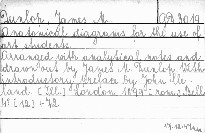 Dunlop, James M.
Anatomical diagrams for the use of
art students.
Arranged with analytical notes and
drawn out by James M. Dunlop. With
introductory preface by John
[Ill.] London 1899
4° [12] + 72